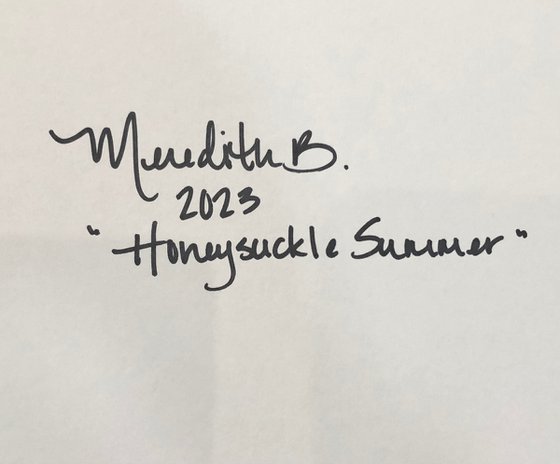 Meredith B.
2023
"Honeysuckle Summer"